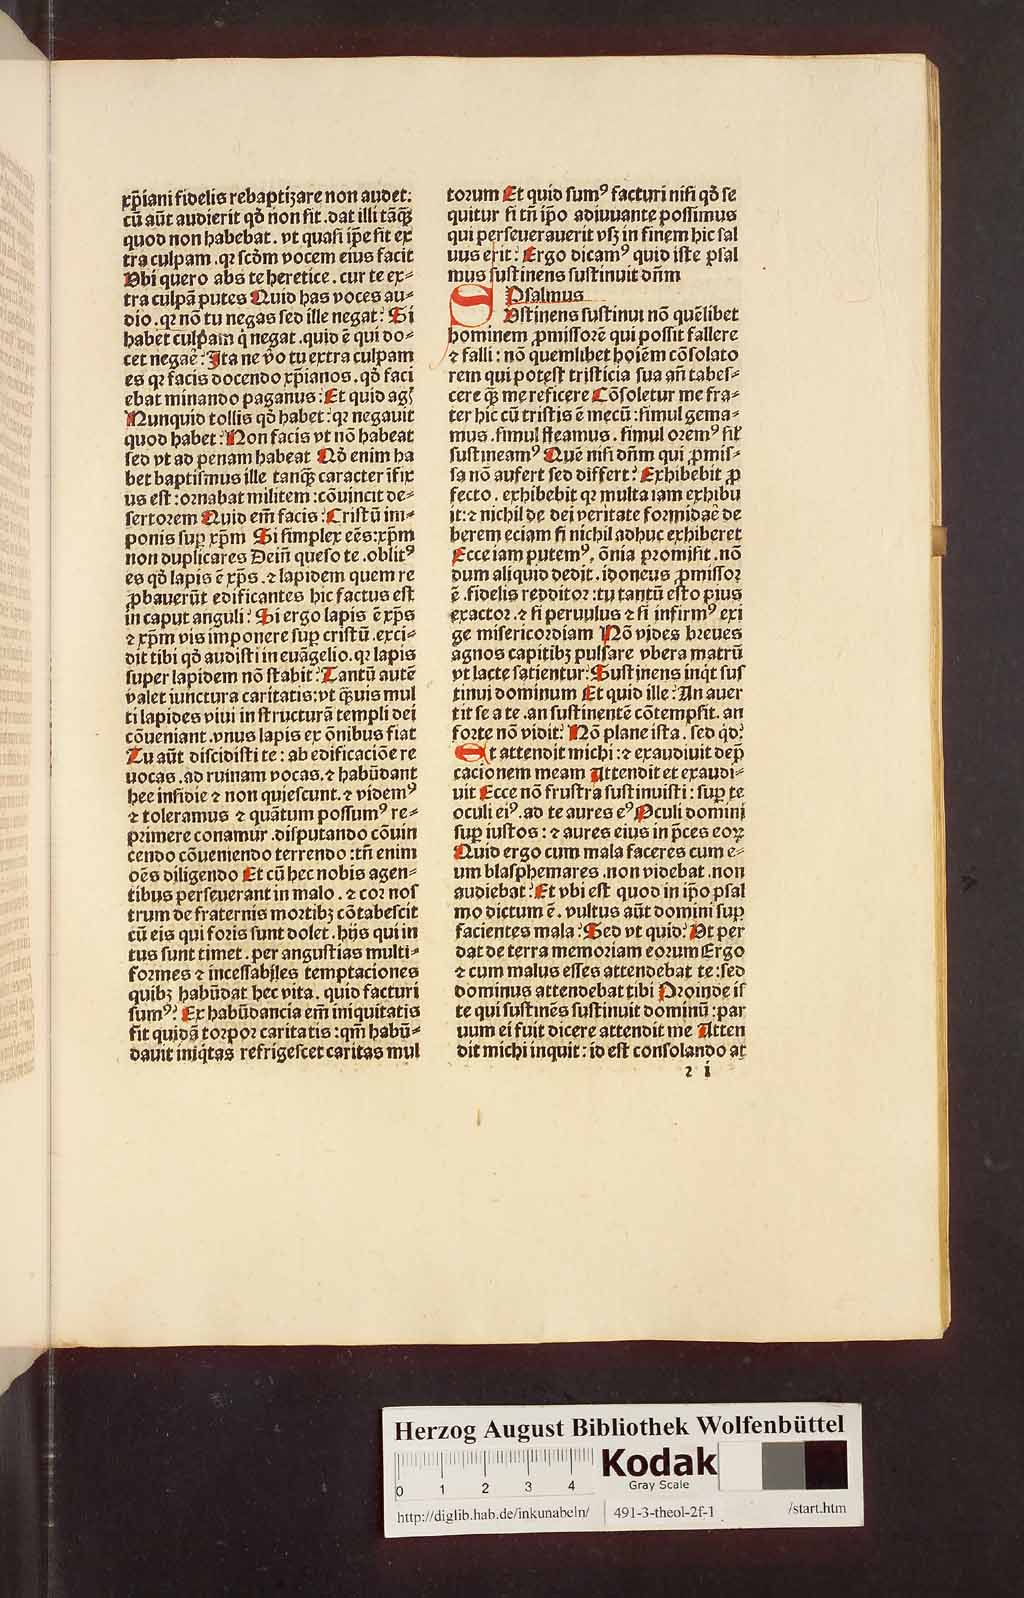 xp̄iani fidelis rebaptizare non audet:
cū aūt audierit qd̓ non fit. dat illi tāq̄ꝫ
quod non habebat. vt quasi ip̄e sit ex
tra culpam. qꝛ scd̓m vocem eius facit
Vbi quero abs te heretice. cur te ex-
tra culpā putes Quid has voces au-
dio. qꝛ nō tu negas sed ille negat? Si
habet culpam q̇ negat. quid ē qui do-
cet negare? Ita ne v̓o tu extra culpam
es qꝛ facis docendo xp̄ianos. qd̓ faci
ebat minando paganus: Et quid agis
Nunquid tollis qd̓ habet? qꝛ negauit
quod habet? Non facis vt nō habeat
sed vt ad penam habeat Qd̓ enim ha
bet baptismus ille tanq̄ꝫ caracter ī̄fix
us est: ornabat militem: cōuincit de-
sertorem Quid em̄ facis? Cristū im-
ponis sup xp̄m Si simplex ees: xp̄m
non duplicares Dein̄ queso te. oblit⁹
es qd̓ lapis ē xp̄s. ⁊ lapidem quem re
ꝓbauerūt edificantes hic factus est
in caput anguli? Si ergo lapis ē xp̄s
⁊ xp̄m vis imponere sup cristū. exci-
dit tibi qd̓ audisti in euāgelio. qꝛ lapis
super lapidem nō stabit? Tantū autē
valet iunctura caritatis: vt q̄uis mul
ti lapides viui in structurā templi dei
cōueniant. vnus lapis ex ōnibus fiat
Tu aūt discidisti te: ab edificaciōe re
uocas. ad ruinam vocas. ⁊ habūdant
hee insidie ⁊ non quiescunt. ⁊ videm⁹
⁊ toleramus ⁊ quātum possum⁹ re-
primere conamur. disputando cōuin
cendo cōueniendo terrendo: tn̄ enim
oēs diligendo Et cū hec nobis agen-
tibus perseuerant in malo. ⁊ cor nos
trum de fraternis mortibꝫ cōtabescit
cū eis qui foris sunt dolet. hijs qui in
tus sunt timet. per angustias multi-
formes ⁊ incessabiles temptaciones
quibꝫ habūdat hec vita. quid facturi
sum⁹? Ex habūdancia em̄ iniquitatis
fit quidā torpor caritatis: qm̄ habū-
dauit iniq̇tas refrigescet caritas mul
torum Et quid sum⁹ facturi nisi qd̓ se
quitur si tn̄ ip̄o adiuuante possimus
qui perseuerauerit vsꝫ in finem hic sal
uus erit? Ergo dicam⁹ quid iste psal
mus sustinens sustinuit dn̄m
Psalmus
SVstinens sustinui nō quēlibet
hominem ꝓmissorē qui possit fallere
⁊ falli: nō quemlibet hoīem cōsolato
rem qui potest tristicia sua an̄ tabes-
cere q̄ꝫ me reficere Cōsoletur me fra-
ter hic cū tristis ē mecū: simul gema-
mus. simul fleamus. simul orem⁹ sil̄
sustineam⁹ Quē nisi dn̄m qui ꝓmis-
sa nō aufert sed differt? Exhibebit ꝓ
fecto. exhibebit qꝛ multa iam exhibu
it: ⁊ nichil de dei veritate formidare de
berem eciam si nichil adhuc exhiberet
Ecce iam putem⁹, ōnia promisit. nō
dum aliquid dedit. idoneus ꝓmissor
ē. fidelis redditor: tu tantū esto pius
exactor. ⁊ si paruulus ⁊ si infirm⁹ exi
ge misericordiam Nō vides breues
agnos capitibꝫ pulsare vbera matrū
vt lacte satientur? Sustinens inq̇t sus
tinui dominum Et quid ille? An auer
tit se a te. an sustinentē cōtempsit. an
forte nō vidit? Nō plane ista. sed qd̓?
Et attendit michi: ⁊ exaudiuit dep̄
cacionem meam Attendit et exaudi-
uit Ecce nō frustra sustinuisti: sup te
oculi ei⁹. ad te aures e⁹ Oculi domini
sup iustos: ⁊ aures eius in p̄ces eoꝝ
Quid ergo cum mala faceres cum e-
um blasphemares. non videbat. non
audiebat? Et vbi est quod in ip̄o psal
mo dictum ē. vultus aūt domini sup
facientes mala? Sed vt quid? Vt per
dat de terra memoriam eorum Ergo
⁊ cum malus esses attendebat te: sed
dominus attendebat tibi Proinde is
te qui sustinēs sustinuit dominū: par
uum ei fuit dicere attendit me Atten
dit michi inquit: id est consolando at
2 i
Herzog August Bibliothek Wolfenbüttel
0 1 2 3 4
Kodak
Gray Scale
http://diglib.hab.de/inkunabeln/ 491-3-theol-2f-1 /start.htm